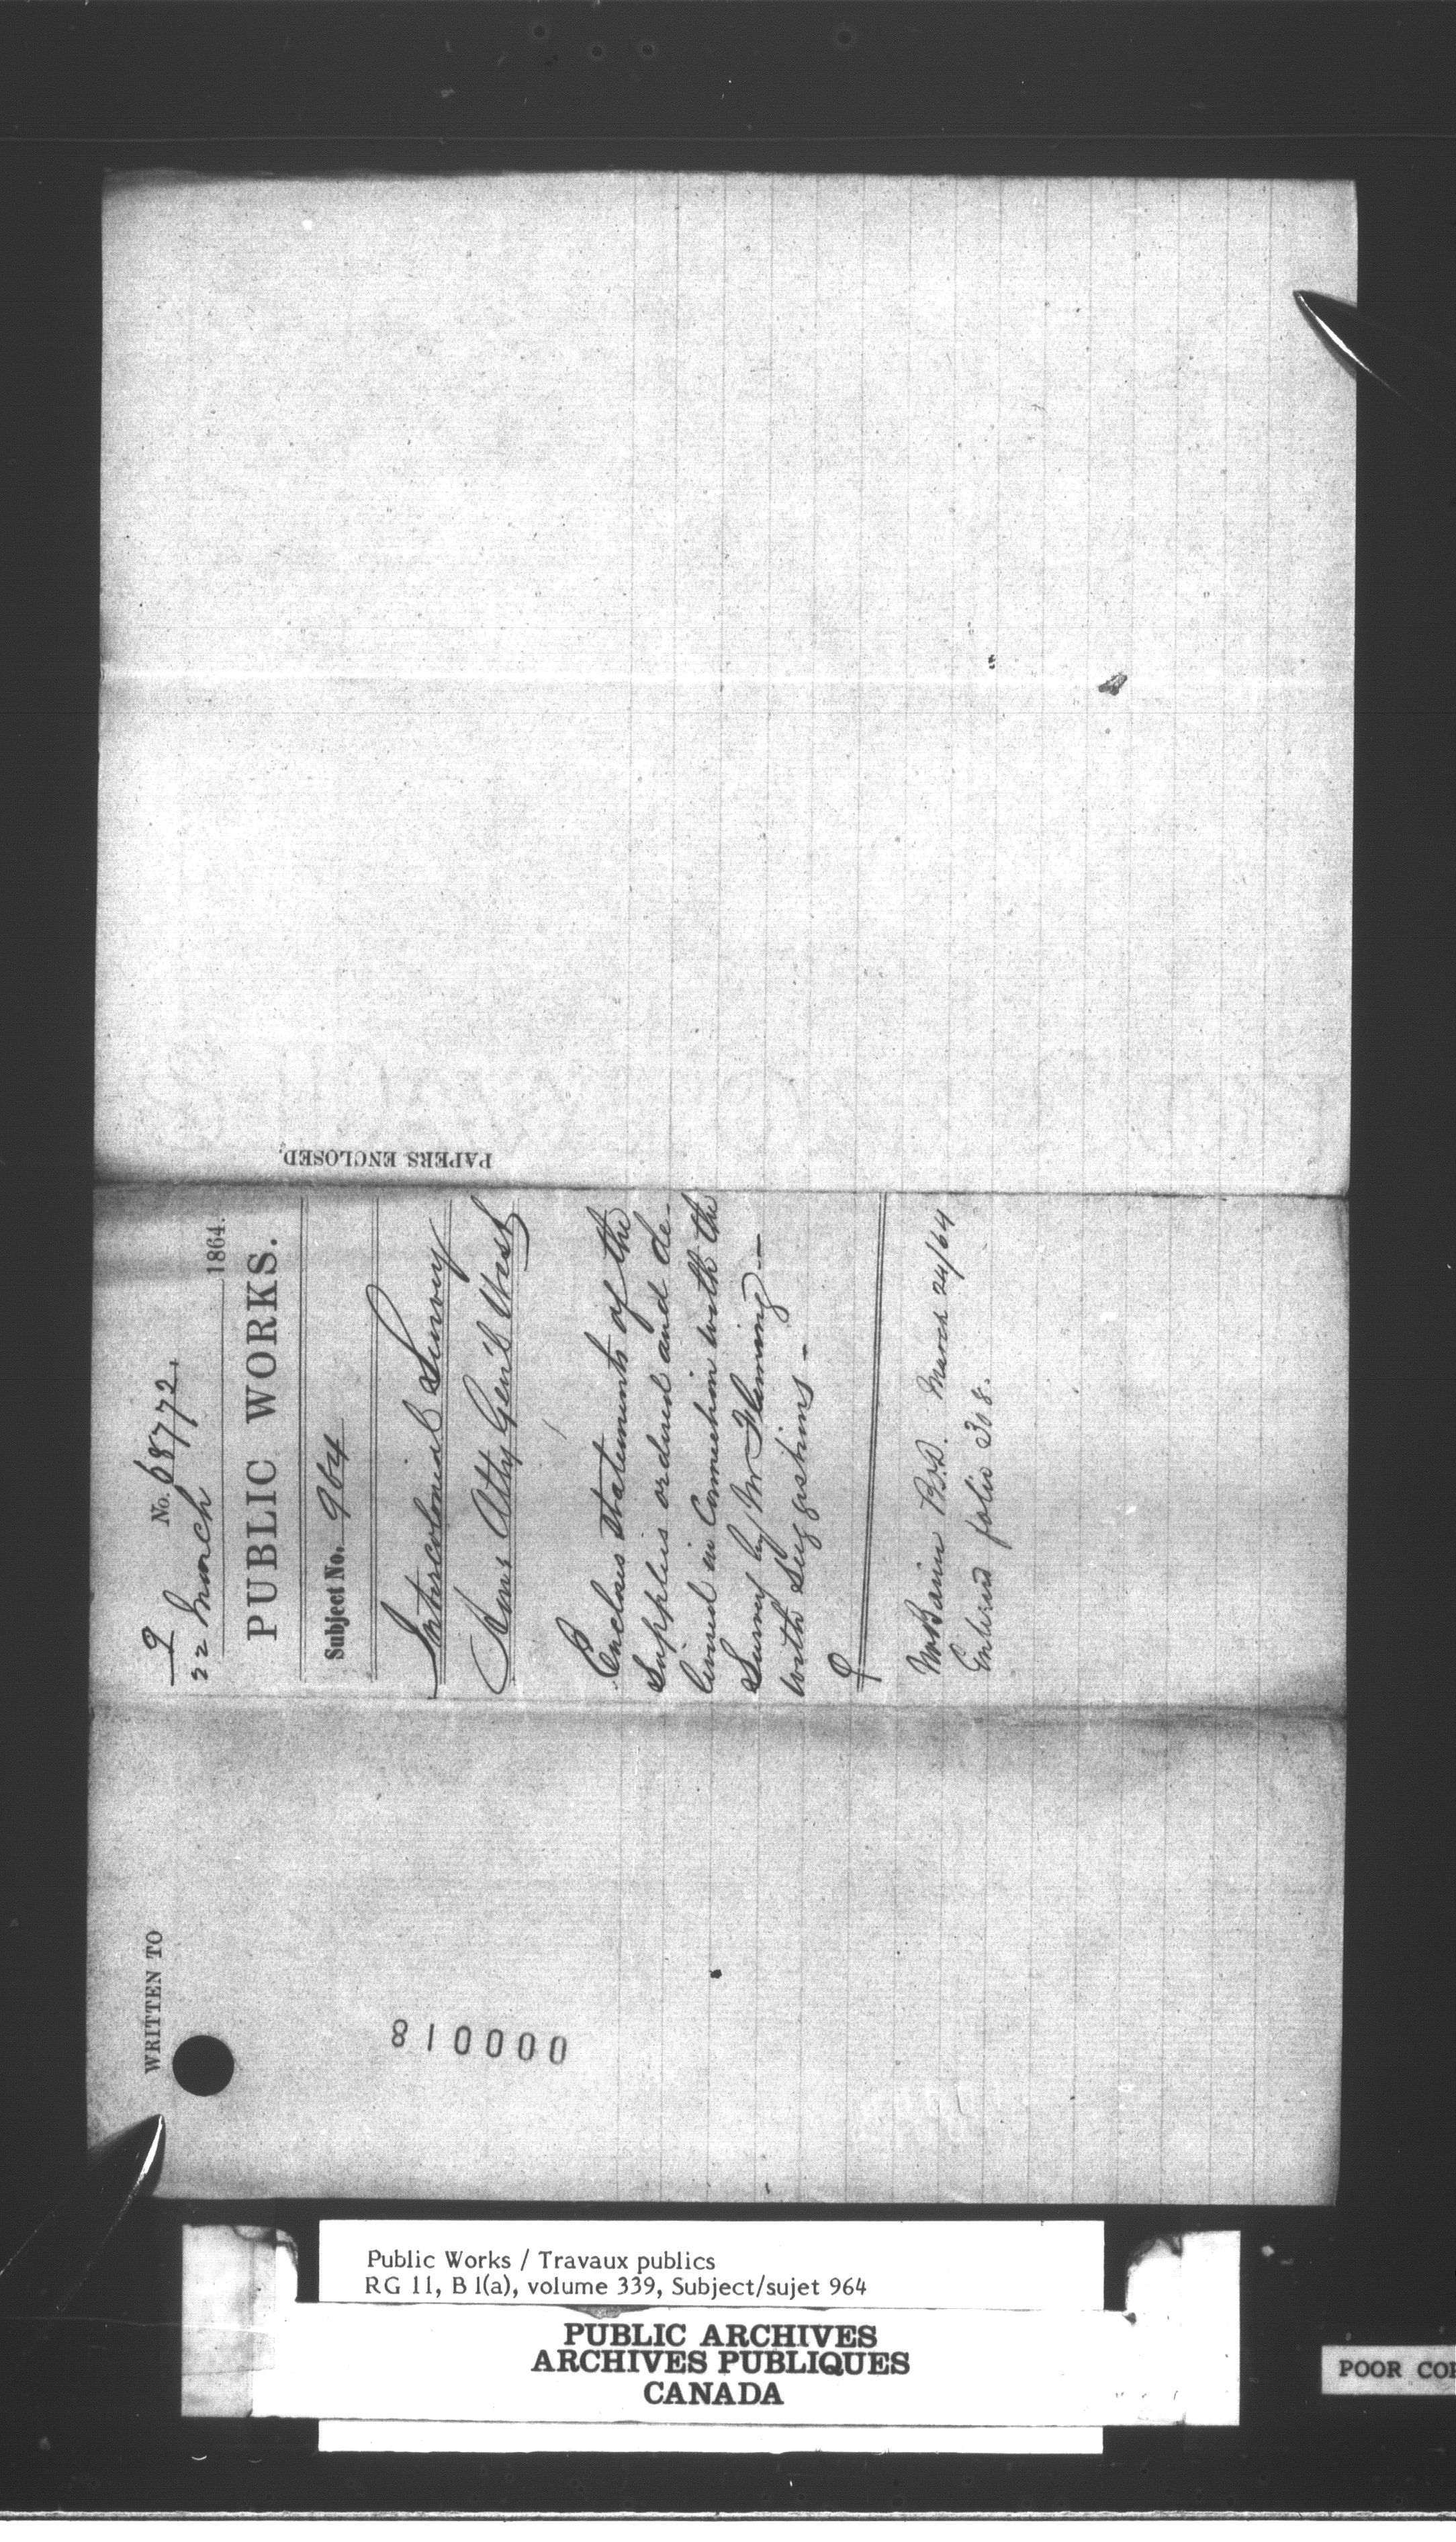 9 No. 68772.
22 March 1864.
PUBLIC WORKS.
Subject No. 964
Intercolonial Survey
Hon. Atty Gen'l West
Encloses statements of the
Supplies ordered and de-
livered in Connection with the
Survey by Mr Fleming —
with Suggestions —
9
Mr Baine B.D. March 24/64
Entered folio 308.
PAPERS ENCLOSED.
WRITTEN TO
000018
Public Works / Travaux publics
RG 11, B 1(a), volume 339, Subject/sujet 964
PUBLIC ARCHIVES
ARCHIVES PUBLIQUES
CANADA
POOR CO